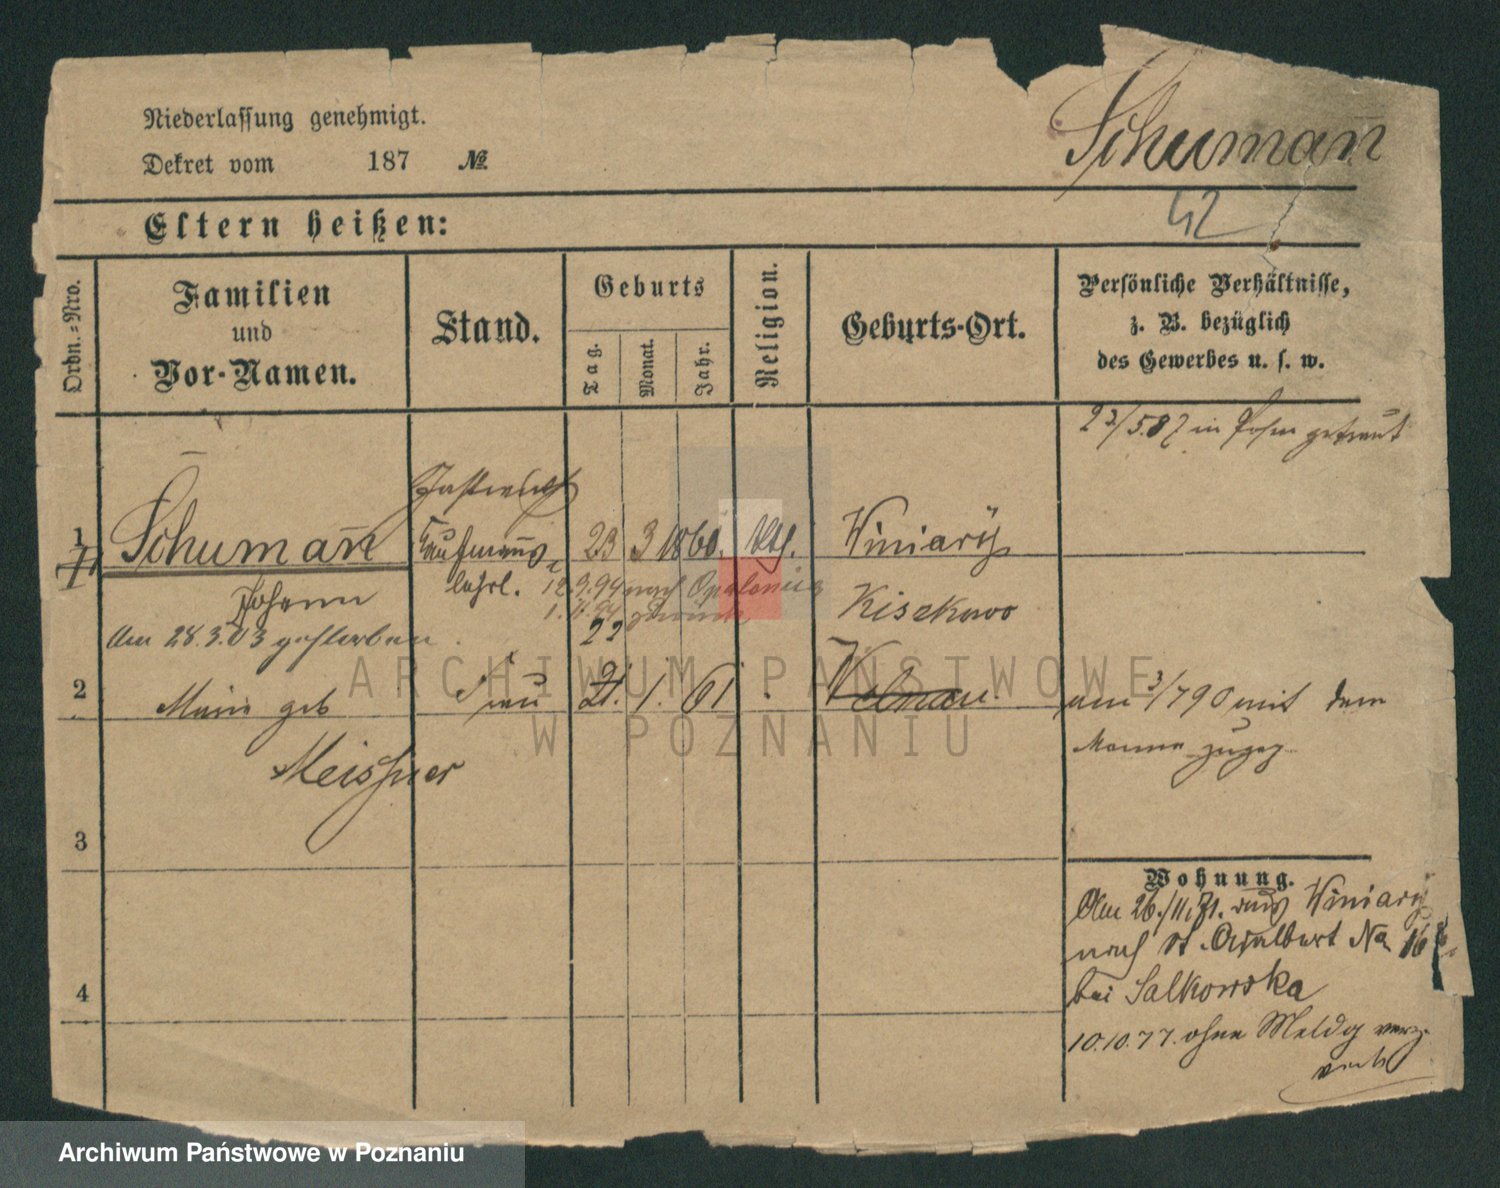 Niederlassung genehmigt.
Dekret vom 187 №
Schuman̄
42
Eltern heißen:
Ordn.=Nro.
Familien
und
Vor-Namen.
Stand.
Geburts
Tag.
Monat.
Jahr.
Religion.
Geburts-Ort.
Persönliche Verhältnisse,
z. B. bezüglich
des Gewerbes u. s. w.
23/5.87 in Posen getraut
Gastwirth
1 Schuman̄ Kaufmanns 23 3 1860. kth. Winiary
Johann lehrl. 12.9.94 nach Opalenica Kiszkowo
1. 94 zurück
am 28.3.03 gestorben 22
2 Marie geb Frau 21. 1. 61 am 3/7 90 mit dem
Meissner Manne zugez.
3
4
Wohnung.
Am 26./11.71. aus Winiary
nach St. Adalbert No 16
bei Salkowska
10.10.77. ohne Meldg verz.
ARCHIWUM PAŃSTWOWE
W POZNANIU
Archiwum Państwowe w Poznaniu